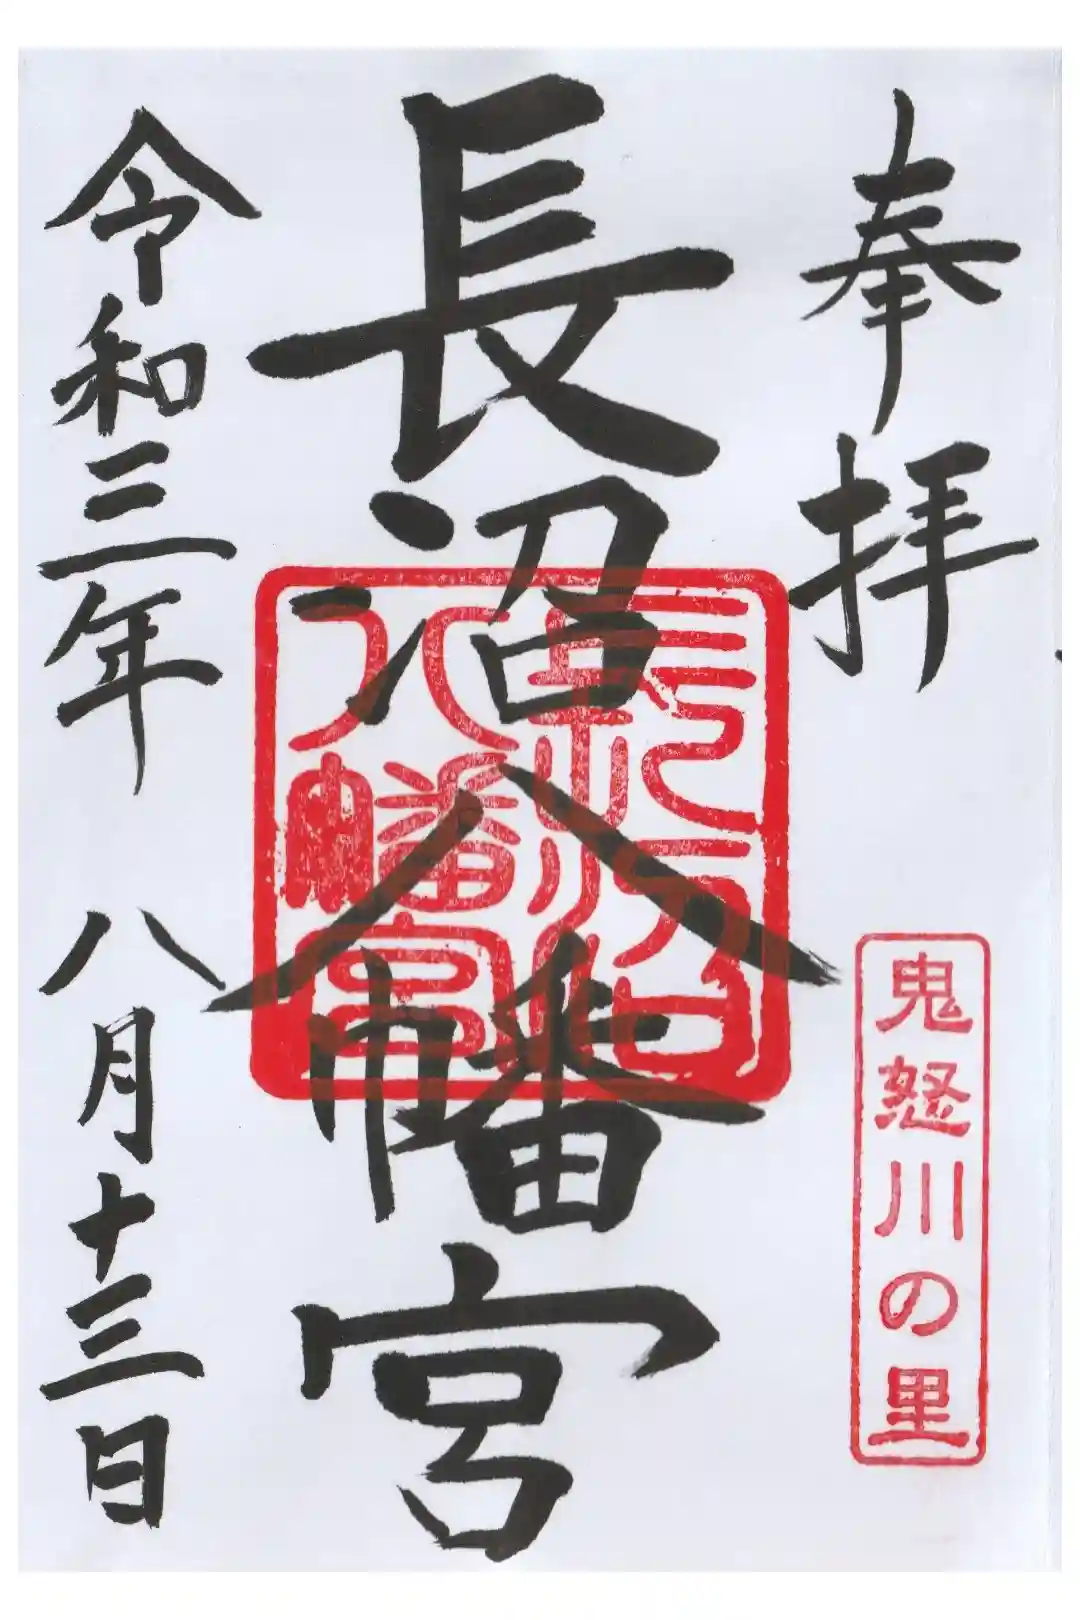 奉拝
鬼怒川の里
長沼八幡宮
長沼
八幡宮
令和三年 八月十三日